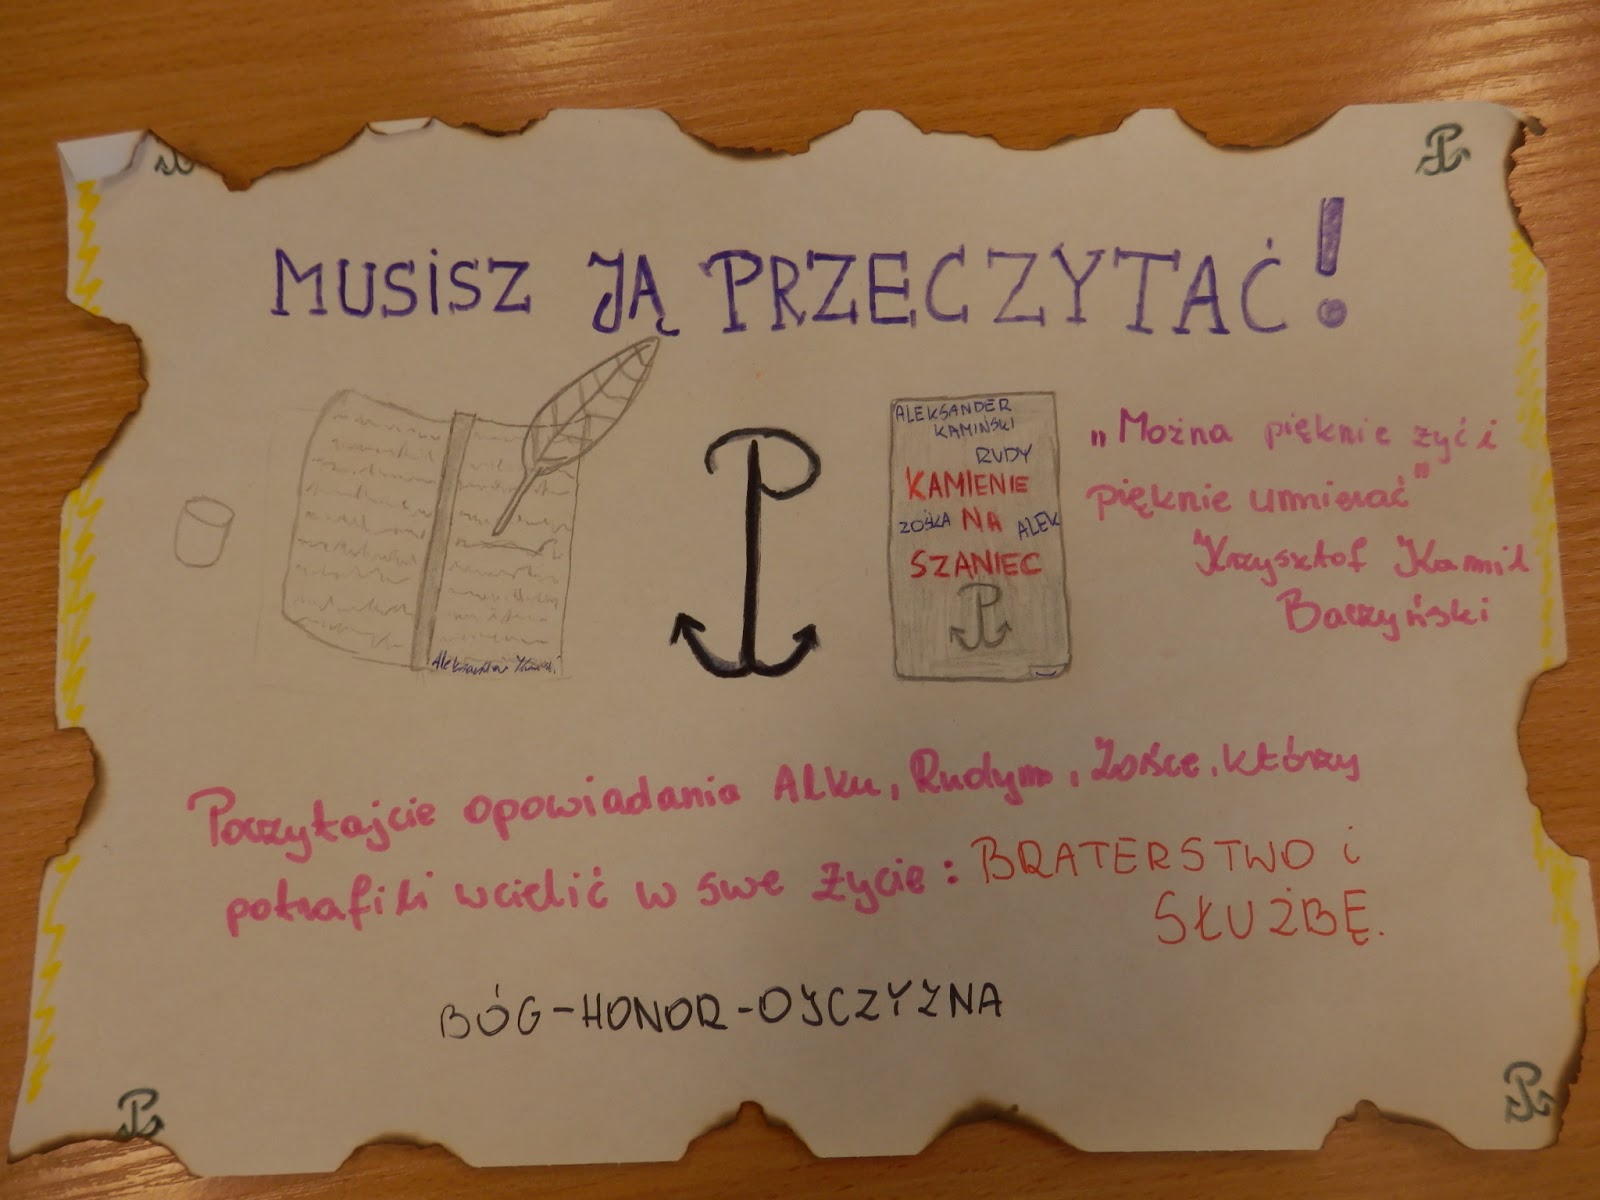 MUSiSZ JĄ PRZECZYTAĆ!
ALEKSANDER
KAMIŃSKI
RUDY
KAMIENIE
ZOŚKA NA ALEK
SZANIEC
„Można pięknie żyć i
pięknie umierać”
Krzysztof Kamil
Baczyński
Aleksander
Poczytajcie opowiadania Alku, Rudym, Zośce, którzy
potrafili wcielić w swe życie: BRATERSTWO i
SŁUŻBĘ.
BÓG-HONOR-OJCZYZNA